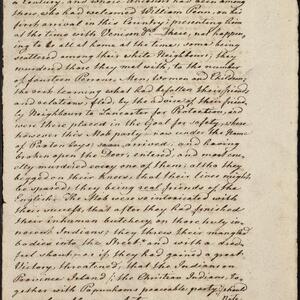 a Century, and whose Ancestors had been among
those, who had welcomed William Penn, on his
first arrival in this Country; presenting him
at the time with Venison &c. These, not happen-
ing to be all at home at the time; some being
scattered among their white Neighbours; they
murdered those they met with, to the number
of fourteen Persons, Men, Women and Children;
the rest learning what had befallen their friends
and relations, fled, by the advice of their friend-
ly Neighbours to Lancaster for Protection, and
were there placed in the Goal for safety; where
however this Mob party — now under the Name
of Paxton boys; soon arrived, and having
broken open the Doors, entered, and most cru-
elly murdered every one of them; altho they
begged on their knees, that their lives might
be spared; they being real friends of the
English. The Mob were so intoxicated with
their success, that after they had finished
their inhuman butchery, on these truly in-
nocent Indians; they threw their mangled
bodies into the Street, and with a dread-
ful shout, as if they had gained a great
Victory, threatened, that the Indians on
Province Island, (the Christian Indians, to-
gether with Papunhanks peaceable party,) should